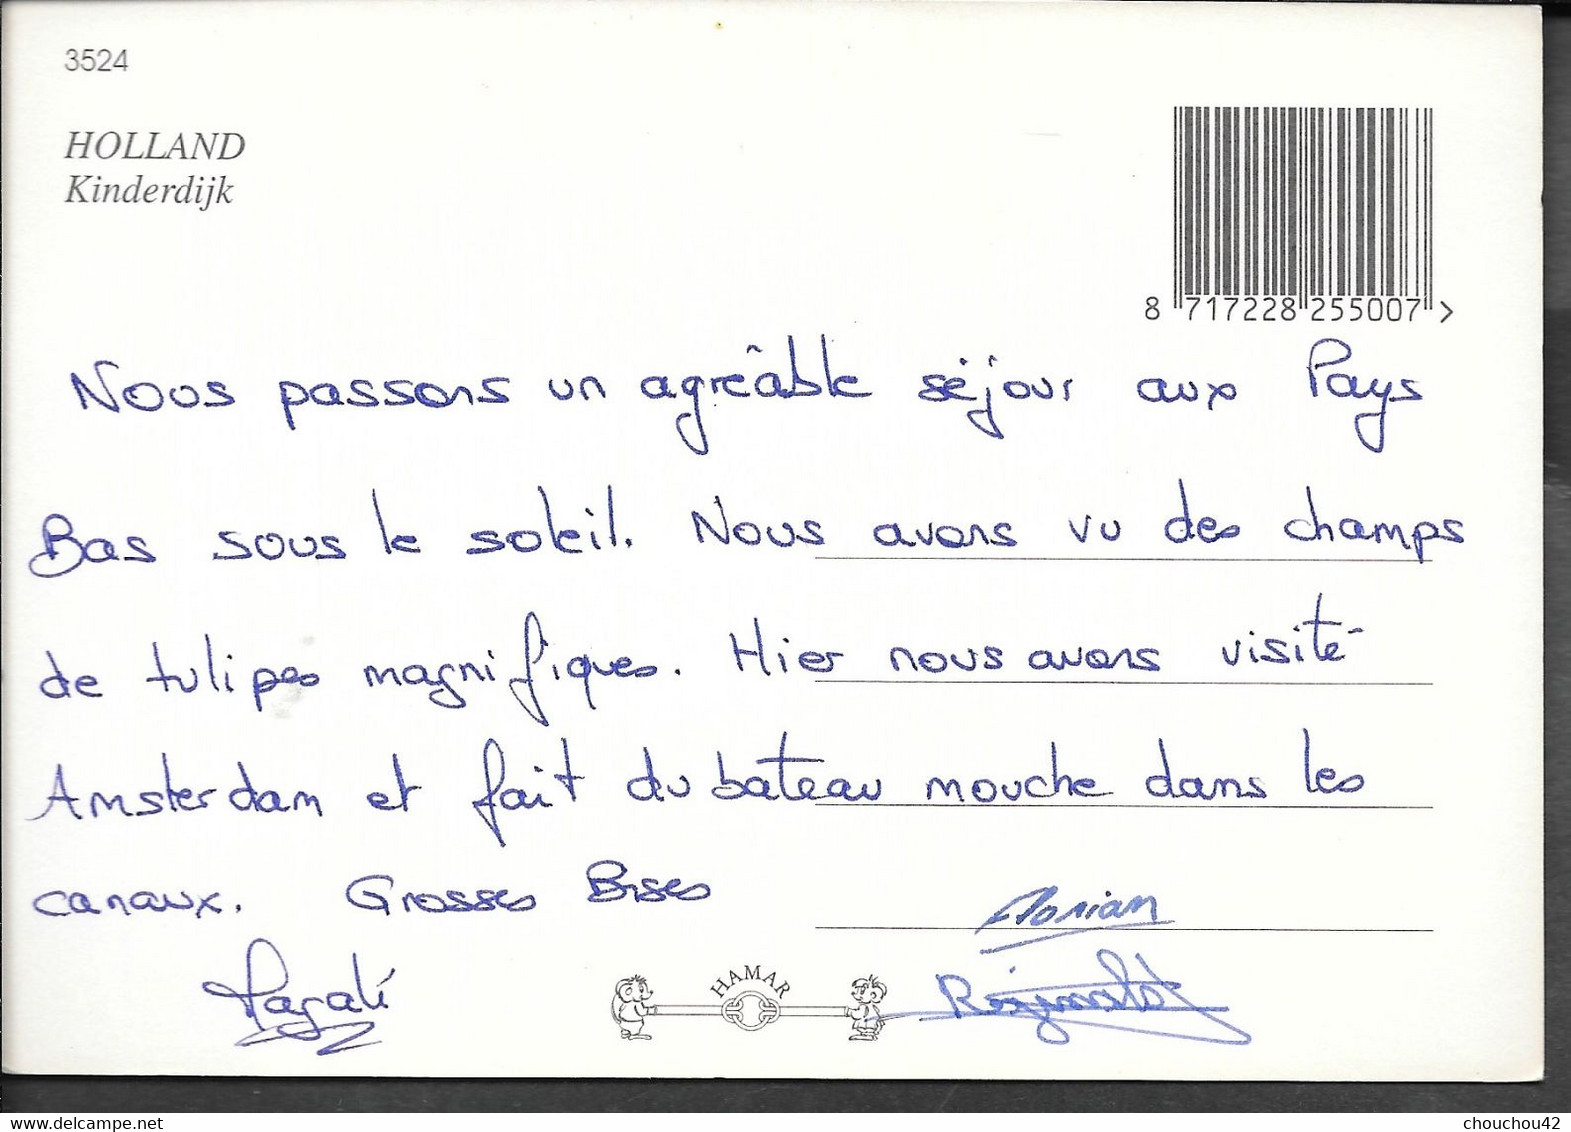 3524
HOLLAND
Kinderdijk
8 717228 255007 >
Nous passons un agréable séjour aux Pays
Bas sous le soleil. Nous avons vu des champs
de tulipes magnifiques. Hier nous avons visité
Amsterdam et fait du bateau mouche dans les
canaux. Grosses Bises
Florian
Magali
HAMAR
chouchou42